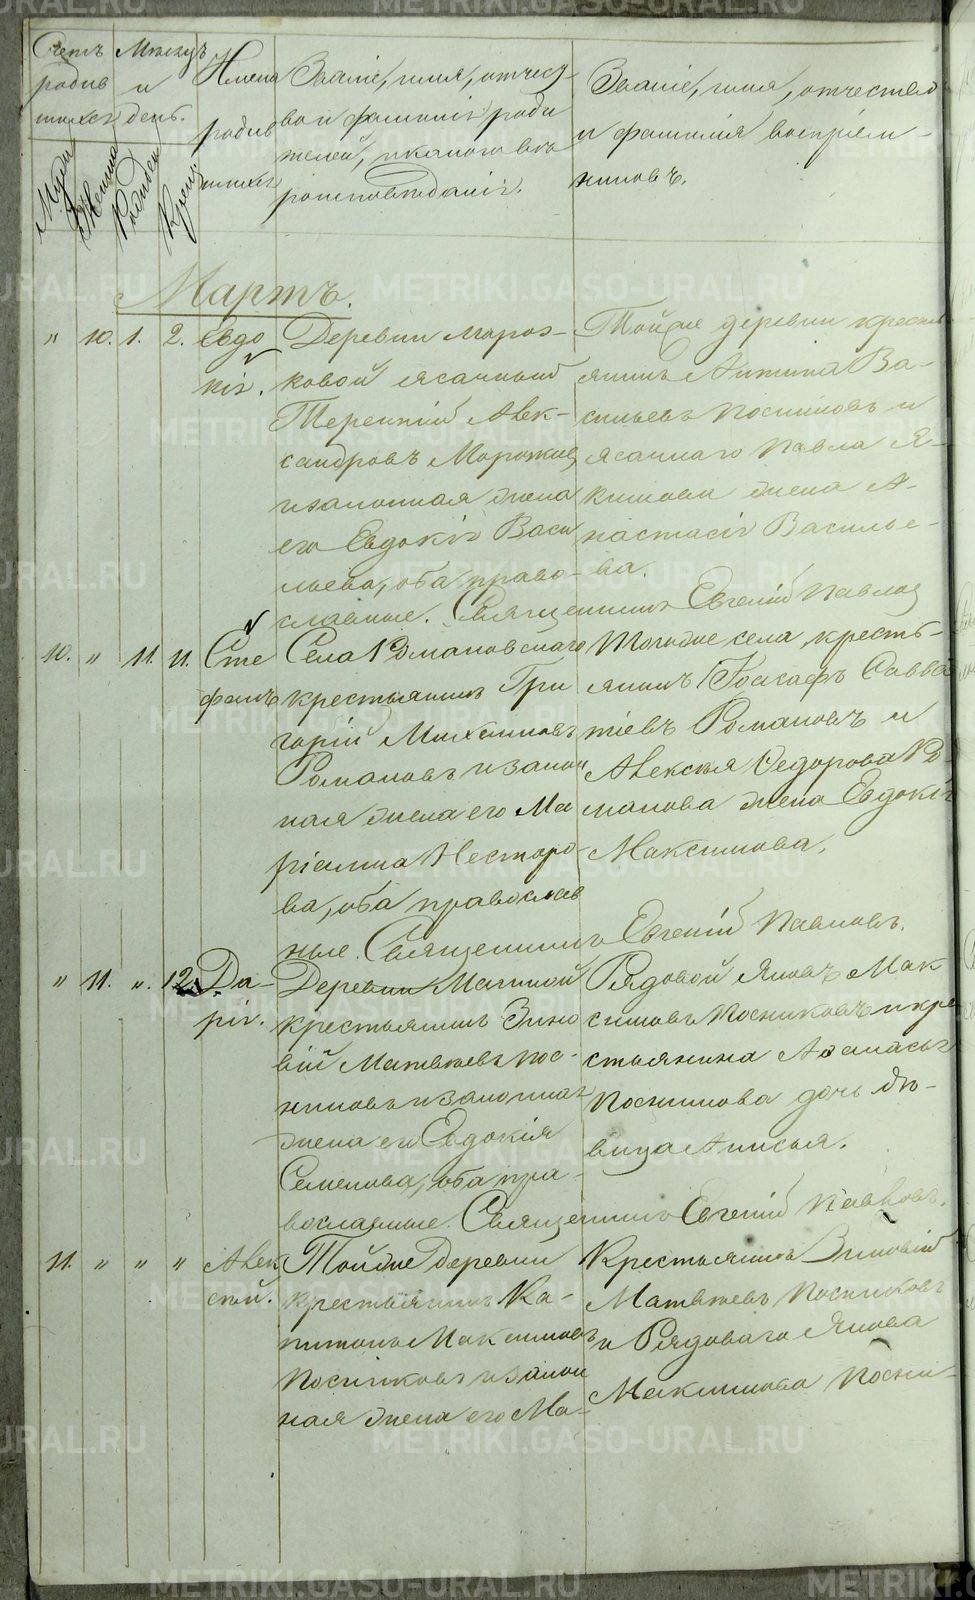 Счетъ родив шихся
Мужеска Женска
Мѣсяцъ и день.
Рожден Крещ
Имена родив шихся
Званіе, имя, отчест
во и фамилія роди
телей, и какого вѣ
роисповѣданія.
Званіе, имя, отчество
и фамилія воспріем-
никовъ.
Мартъ.
" 10. 1. 2. Евдо
кія.
Деревни Мороз-
ковой ясачный
Терентій Алек-
сандровъ Морозков
и законная жена
его Евдокія Васи
льева, оба право-
славные. Священникъ Евгеній Павлов
Той же деревни кресть
янинъ Антипа Ва-
сильевъ Посниковъ и
ясачнаго Павла Я-
кимова жена А-
настасія Василье-
ва.
10. " 11. 11. Сте
фанъ
Села Романовскаго
крестьянинъ Гри
горій Михаиловъ
Романовъ и закон
ная жена его Ма
ріанна Несторо-
ва, оба православ
ные. Священникъ Евгеній Павловъ.
Тогоже села, кресть-
янинъ Іоасафъ Савва
тіевъ Романовъ и
Алексѣя Ѳедорова Ро-
манова жена Евдокія
Максимова.
" 11. ". 12. Да-
рія.
Деревни Матиной
крестьянинъ Зино
вій Матвѣевъ Пос-
никовъ и законная
жена его Евдокія
Семенова, оба пра-
вославные. Священникъ Евгеній Павловъ.
Рядовой Яковъ Мак
симовъ Посниковъ и кре
стьянина Аѳанасья
Посникова дочь дѣ-
вица Анисья.
11. " " " Алек
сѣй.
Тойже деревни
крестьянинъ Ка-
питонъ Максимовъ
Посниковъ и закон
ная жена его Ма-
Крестьянинъ Зиновій
Матвѣевъ Посниковъ
и Рядоваго Якова
Максимова Посни-
METRIKI.GASO-URAL.RU